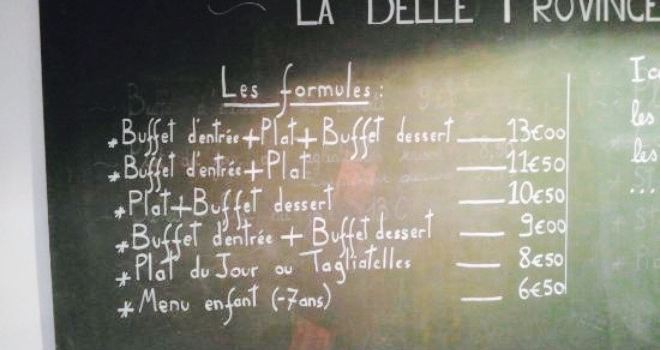 LA BELLE PROVINCE
Les formules:
* Buffet d'entrée + Plat + Buffet dessert — 13€00
* Buffet d'entrée + Plat — 11€50
* Plat + Buffet dessert — 10€50
* Buffet d'entrée + Buffet dessert — 9€00
* Plat du Jour ou Tagliatelles — 8€50
* Menu enfant (-7ans) — 6€50
les
les
...